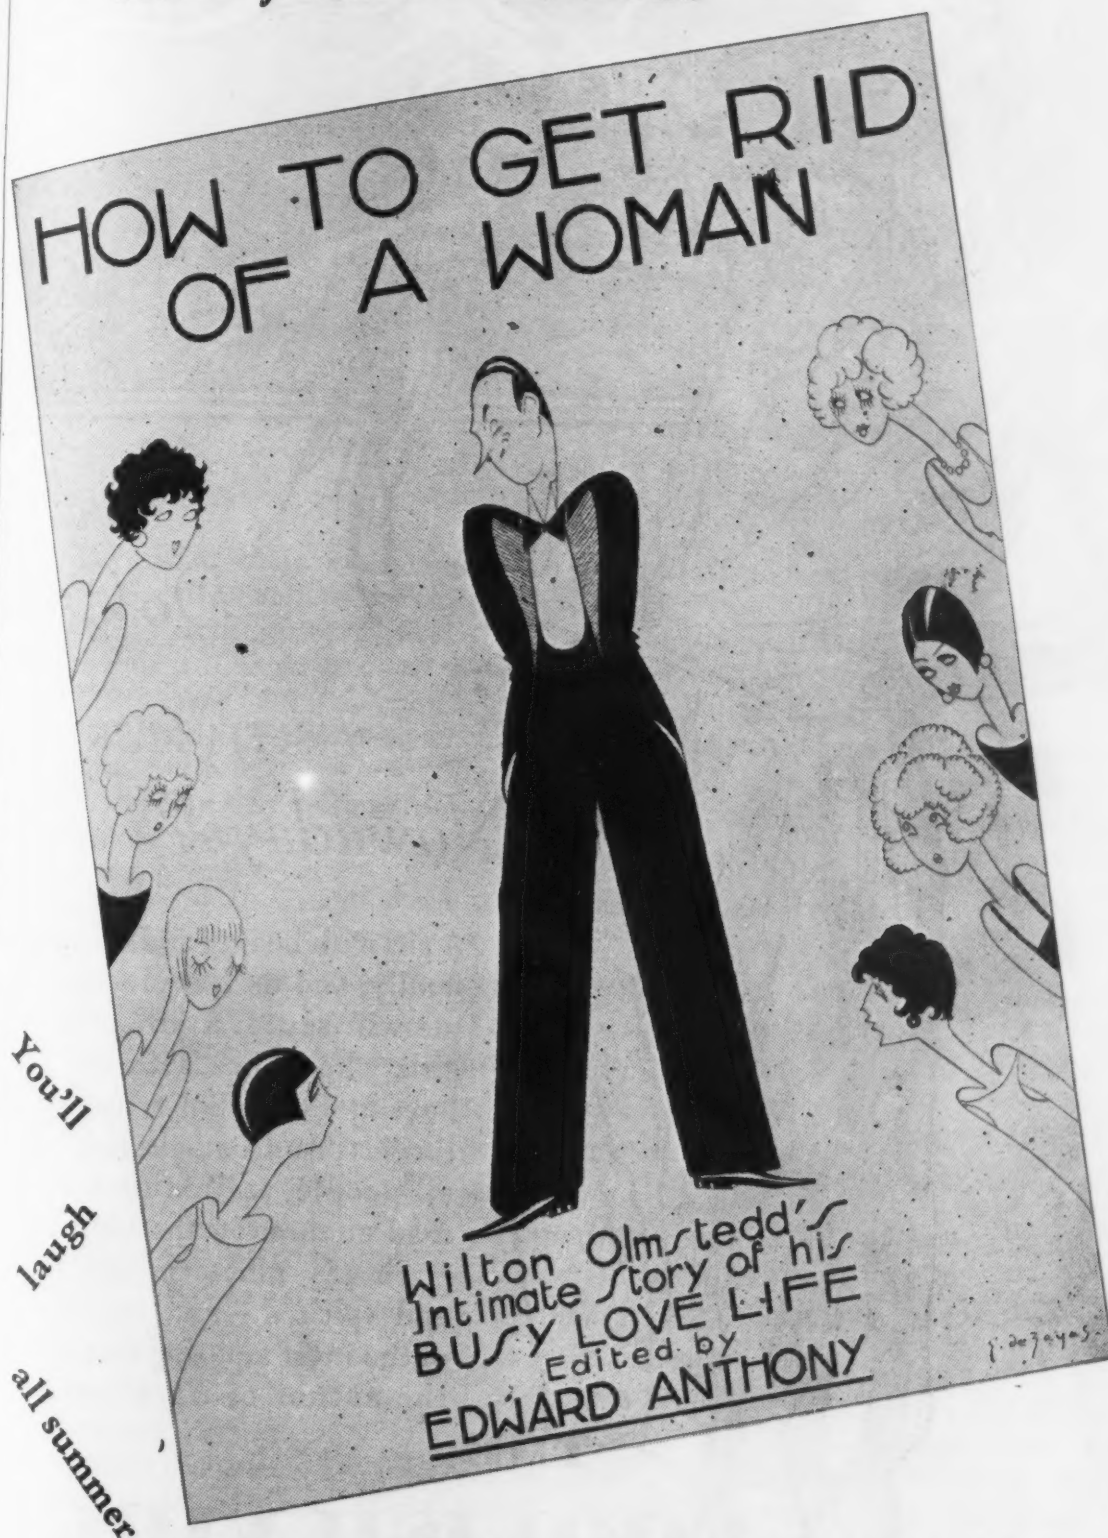 HOW TO GET RID
OF A WOMAN
Wilton Olmstedd's
Intimate Story of his
BUSY LOVE LIFE
Edited by
EDWARD ANTHONY
You'll
laugh
all summer